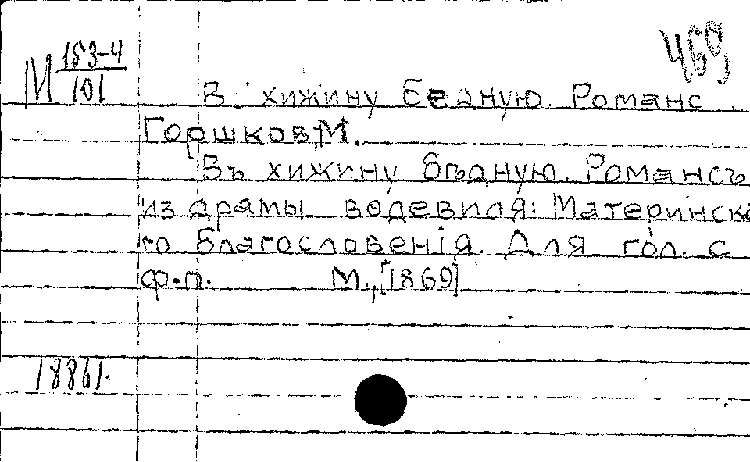 469
М 153-4/101
В хижину бедную. Романс.
Горшков, М.
Въ хижину бѣдную. Романсъ
из драмы водевиля: Материнска
го благословенія. Для гол. с
ф.п. М., [1869]
18861.